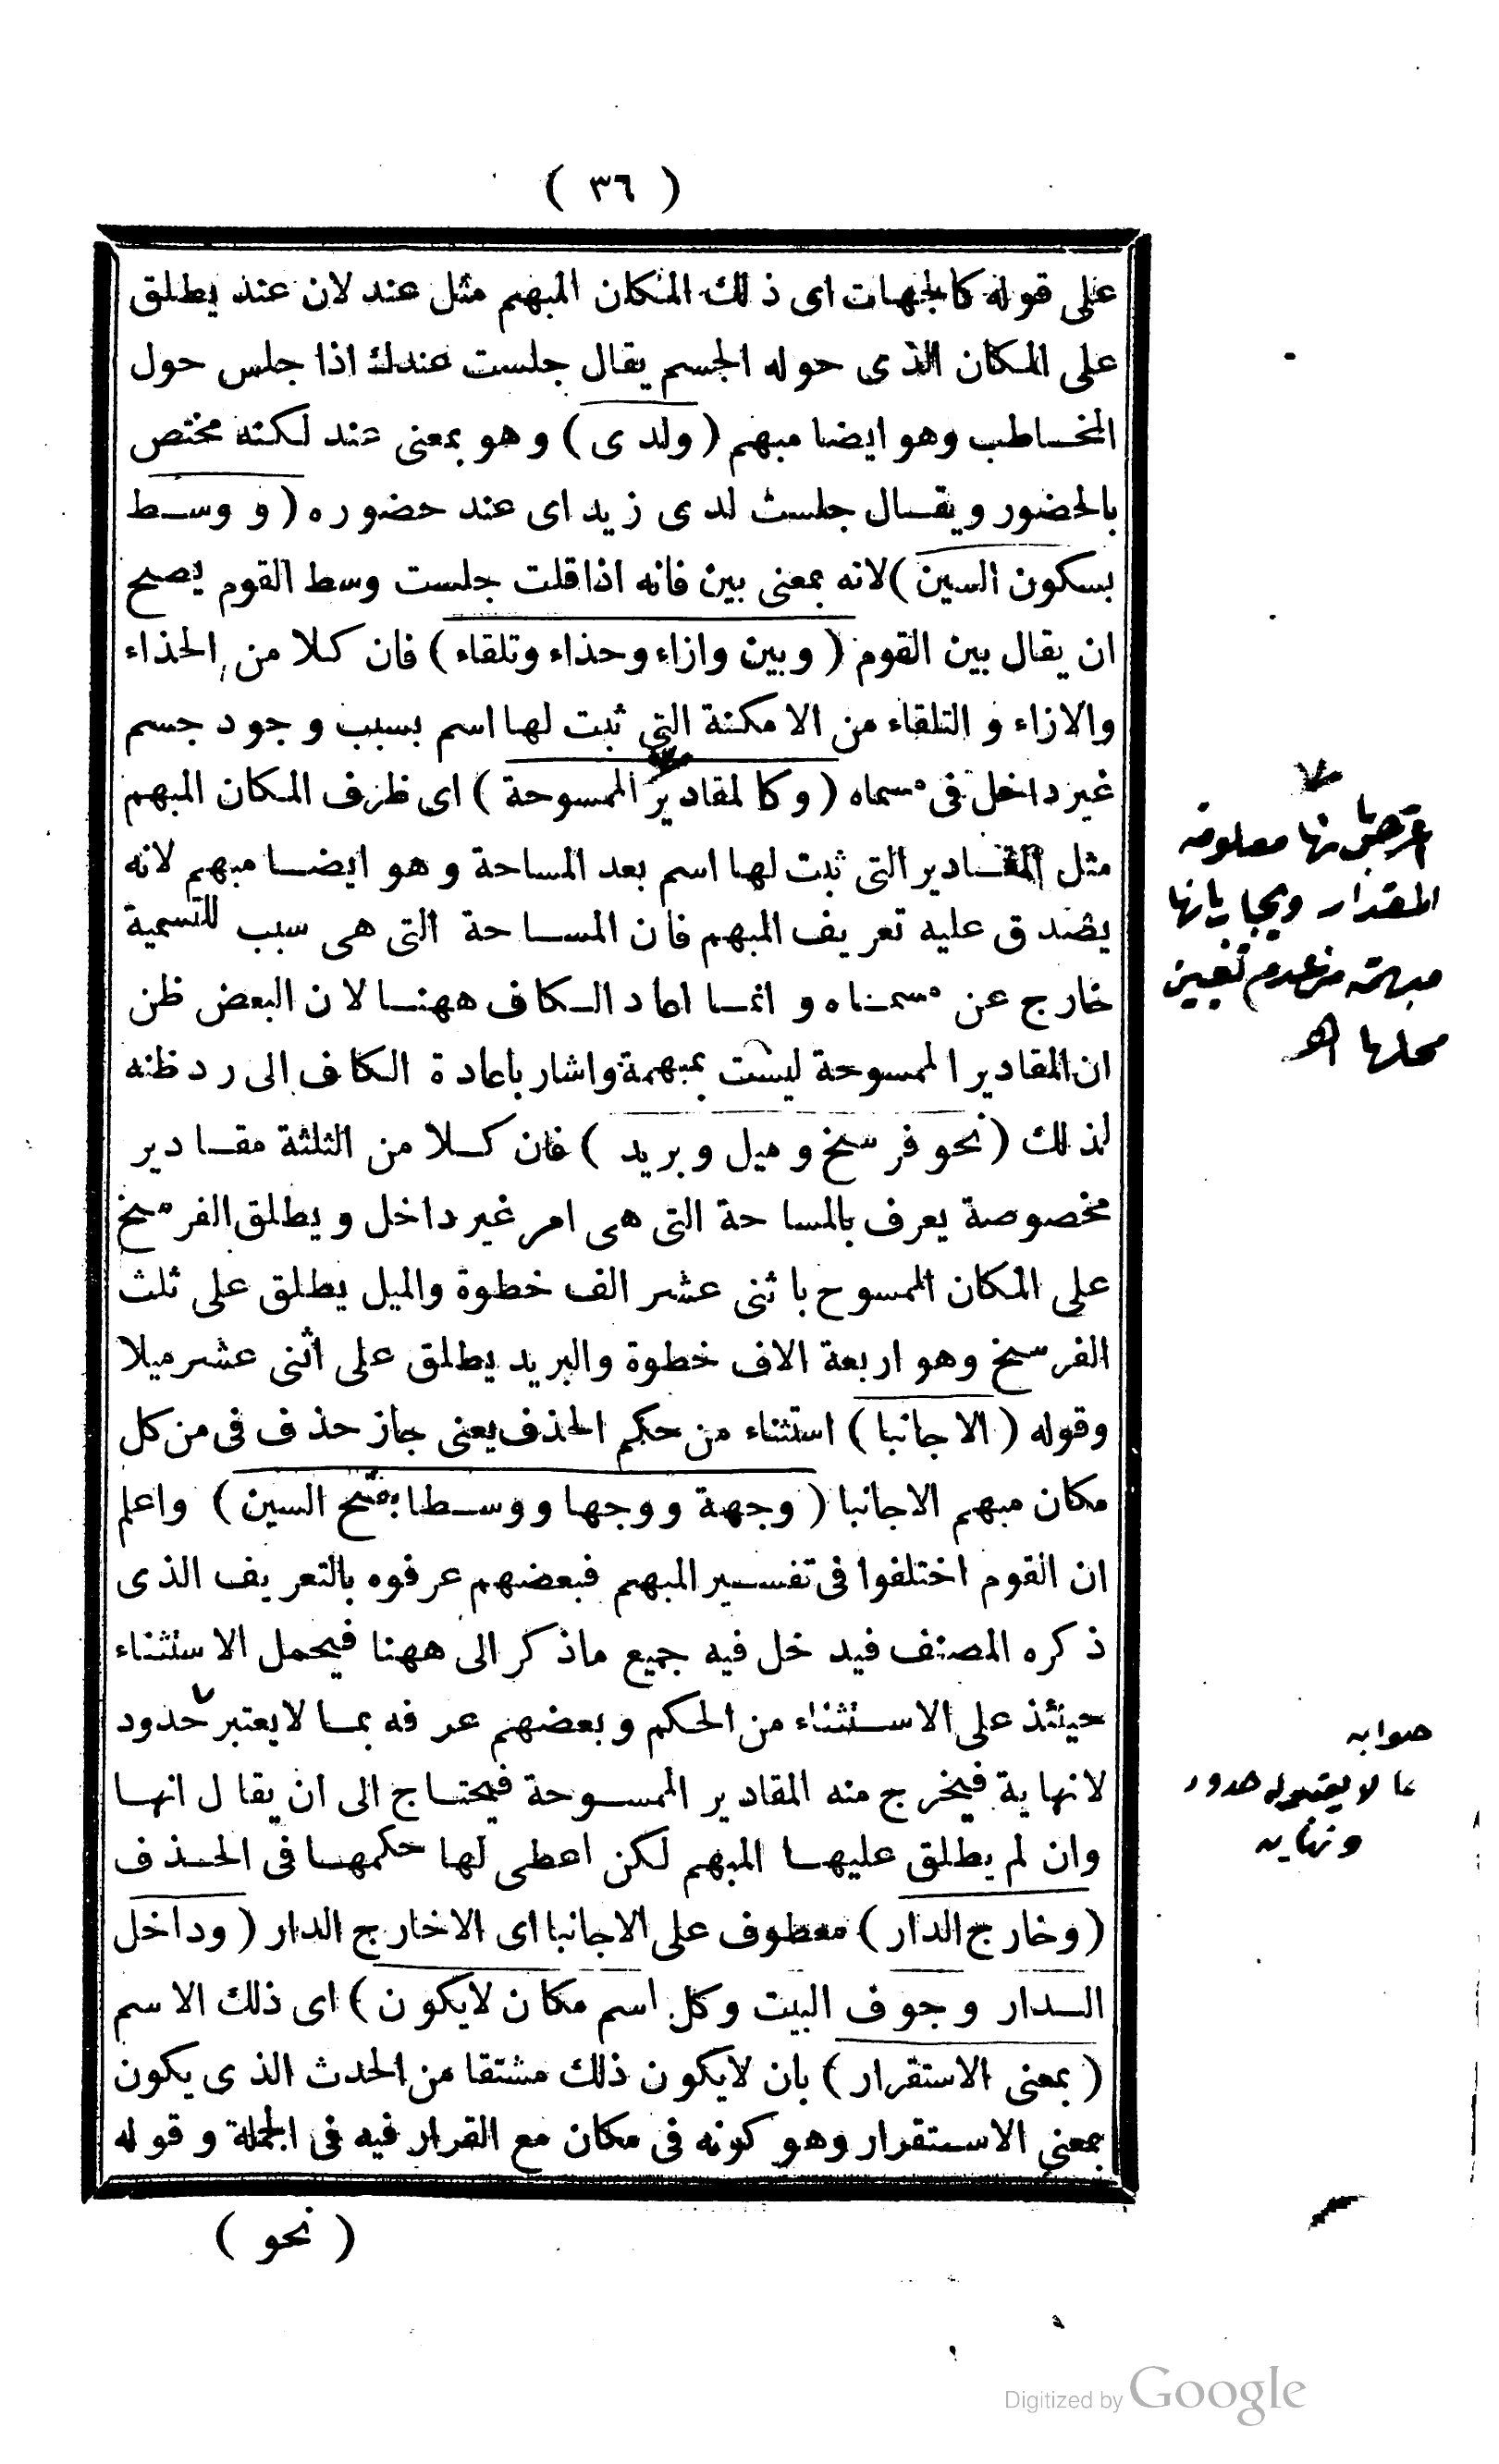 ( ٣٦ )
على قوله كالجهات اى ذلك المكان المبهم مثل عند لان عند يطلق
على المكان الذى حوله الجسم يقال جلست عندك اذا جلس حول
المخاطب وهو ايضا مبهم ( ولدى ) وهو بمعنى عند لكنه مختص
بالحضور ويقال جلست لدى زيد اى عند حضوره ( ووسط
بسكون السين ) لانه بمعنى بين فانه اذا قلت جلست وسط القوم يصح
ان يقال بين القوم ( وبين وازاء وحذاء وتلقاء ) فان كلا من الحذاء
والازاء والتلقاء من الامكنة التى ثبت لها اسم بسبب وجود جسم
غير داخل فى مسماه ( وكالمقادير الممسوحة ) اى ظرف المكان المبهم
مثل المقادير التى ثبت لها اسم بعد المساحة وهو ايضا مبهم لانه
يصدق عليه تعريف المبهم فان المساحة التى هى سبب للتسمية
خارج عن مسماه وانما اعاد الكاف ههنا لان البعض ظن
ان المقادير الممسوحة ليست بمبهمة واشار باعادة الكاف الى رد ظنه
لذلك ( نحو فرسخ وميل وبريد ) فان كلا من الثلثة مقادير
مخصوصة يعرف بالمساحة التى هى امر غير داخل ويطلق الفرسخ
على المكان الممسوح باثنى عشر الف خطوة والميل يطلق على ثلث
الفرسخ وهو اربعة الاف خطوة والبريد يطلق على اثنى عشر ميلا
وقوله ( الاجانبا ) استثناء من حكم الحذف يعنى جاز حذف فى من كل
مكان مبهم الاجانبا ( وجهة ووجها ووسطا بفتح السين ) واعلم
ان القوم اختلفوا فى تفسير المبهم فبعضهم عرفوه بالتعريف الذى
ذكره المصنف فيدخل فيه جميع ماذكر الى ههنا فيحمل الاستثناء
حينئذ على الاستثناء من الحكم وبعضهم عرفه بما لايعتبر حدود
لانهاية فيخرج منه المقادير الممسوحة فيحتاج الى ان يقال انها
وان لم يطلق عليها المبهم لكن اعطى لها حكمها فى الحذف
( وخارج الدار ) معطوف على الاجانبا اى الاخارج الدار ( وداخل
الدار وجوف البيت وكل اسم مكان لايكون ) اى ذلك الاسم
( بمعنى الاستقرار ) بان لايكون ذلك مشتقا من الحدث الذى يكون
بمعنى الاستقرار وهو كونه فى مكان مع القرار فيه فى الجملة وقوله
( نحو )
معلومة
المقدار ويجاب بانها
مبهمة من عدم تعيين
محلها اهـ
صوابه
حدود
ونهاية
Digitized by Google